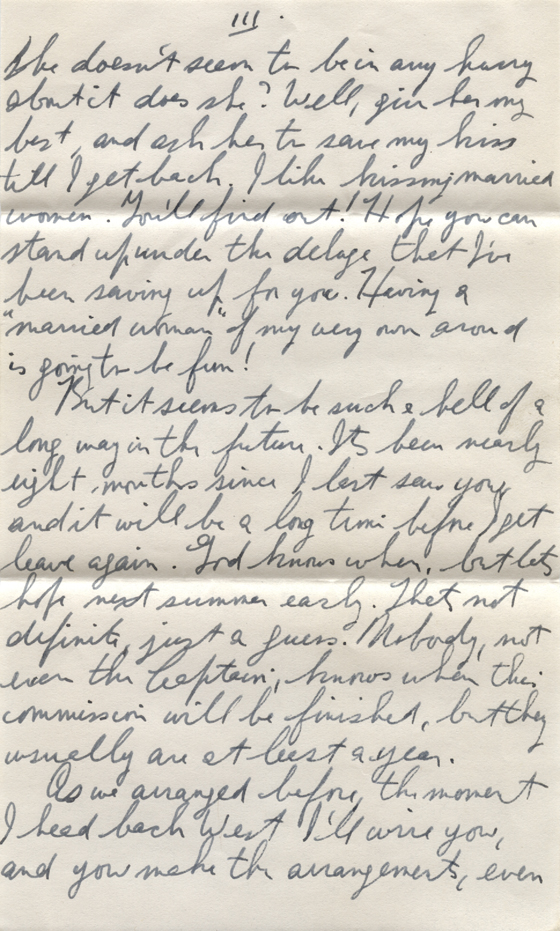 III.
She doesn't seem to be in any hurry
about it does she? Well, give her my
best, and ask her to save my kiss
till I get back. I like kissing married
women. You'll find out! Hope you can
stand up under the deluge that I've
been saving up for you. Having a
"married woman" of my very own around
is going to be fun!
But it seems to be such a hell of a
long way in the future. Its been nearly
eight months since I last saw you,
and it will be a long time before I get
leave again. God knows when, but lets
hope next summer early. Thats not
definite, just a guess. Nobody, not
even the Captain, knows when this
commission will be finished, but they
usually are at least a year.
As we arranged before, the moment
I head back West I'll wire you,
and you make the arrangements, even